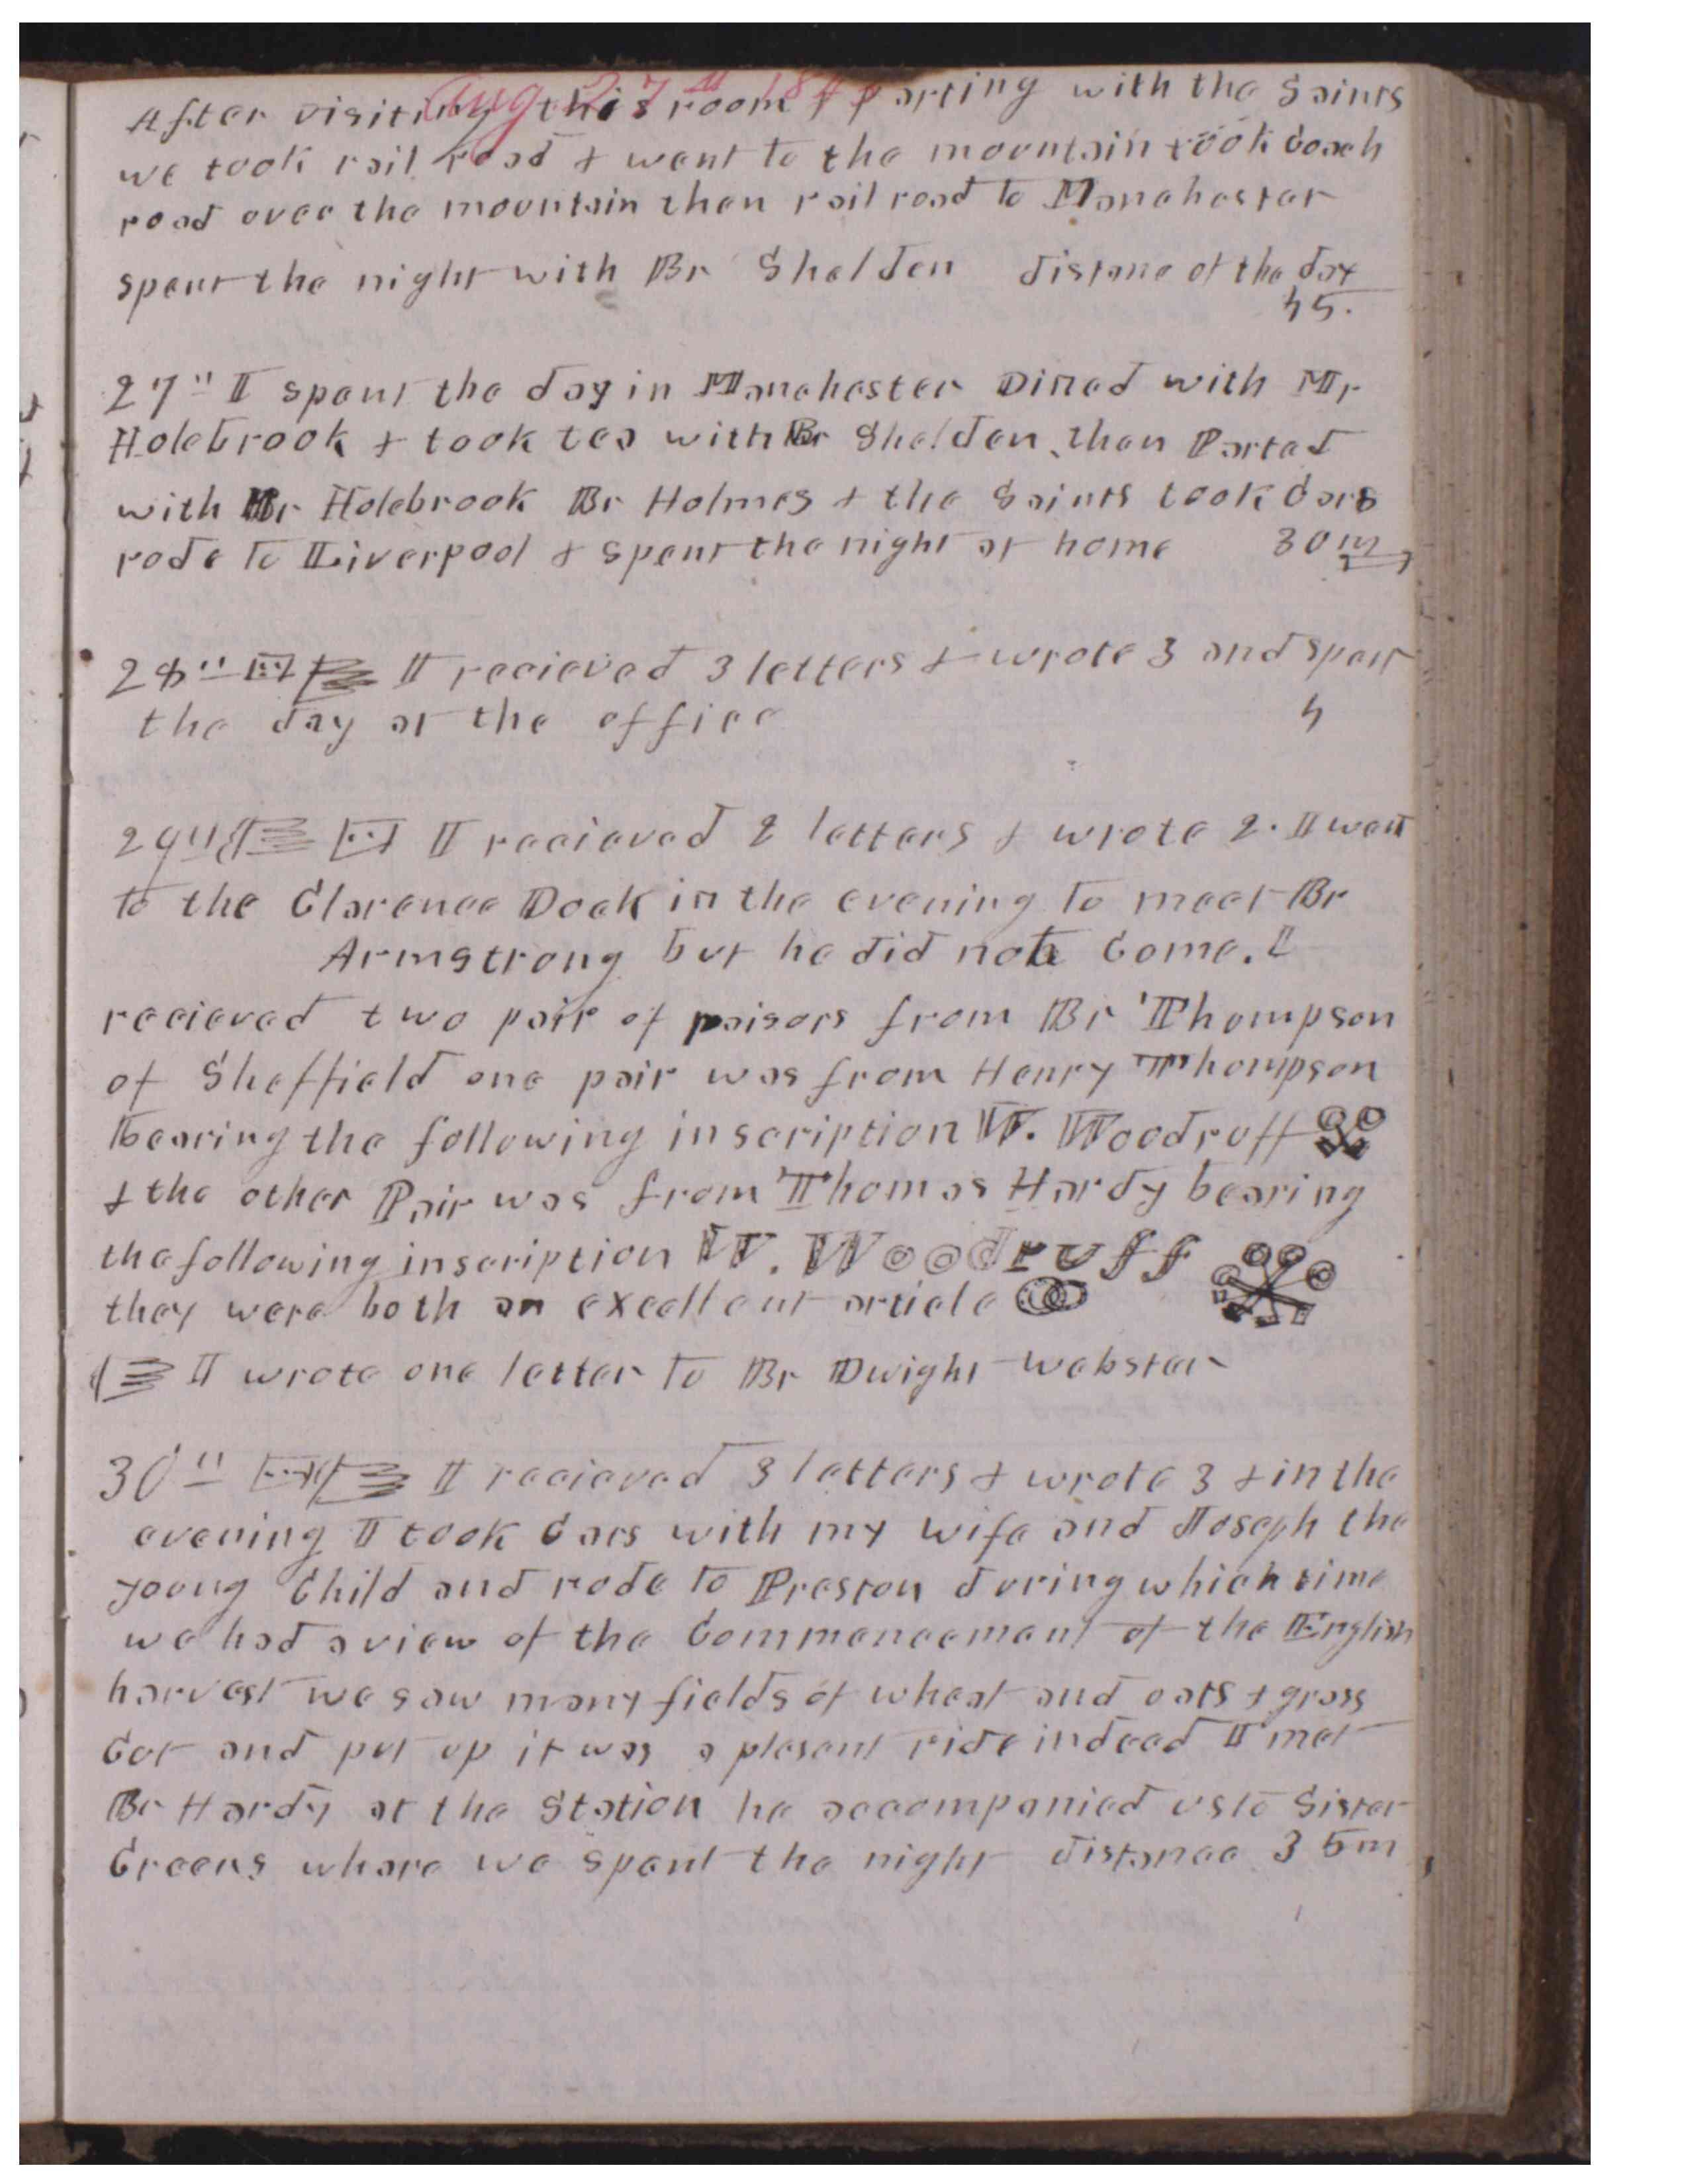 Aug 27th 1845
After visiting this room & parting with the Saints
we took rail road & went to the mountain took Coach
road over the mountain then rail road to Manchester
spent the night with Br Shelden distanc of the day
45.
27" I spent the day in Manchester Dined with Mr
Holebrook & took tea with Br Shelden, then Parted
with Mr Holebrook Br Holmes & the Saints took Cars
rode to Liverpool & spent the night at home 30 m
28" I recieved 3 letters & wrote 3 and spent
the day at the office 4
29" I recieved 2 letters & wrote 2. I went
to the Clarence Dock in the evening to meet Br
Armstrong but he did not Come. I
recieved two pair of raisors from Br Thompson
of Sheffield one pair was from Henry Thompson
bearing the following inscription W. Woodruff
& the other Pair was from Thomas Hardy bearing
the following inscription W. Woodruff
they were both an excellent article
I wrote one letter to Br Dwight Webster
30" I recieved 3 letters & wrote 3 & in the
evening I took Cars with my wife and Joseph the
young Child and rode to Preston during which time
we had a view of the Commencement of the English
harvest we saw many fields of wheat and oats & grass
Cut and put up it was a plesant ride indeed I met
Br Hardy at the Station he accompanied us to Sister
Greens where we spent the night distance 35m